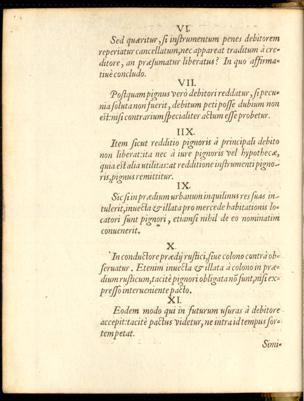 VI.
Sed quæritur, si instrumentum penes debitorem
reperiatur cancellatum, nec appareat traditum à cre-
ditore, an præsumatur liberatus? In quo affirma-
tiuè concludo.
VII.
Postquam pignus verò debitori redditur, si pecu-
nia soluta non fuerit, debitum peti posse dubium non
est: nisi contrarium specialiter actum esse probetur.
IIX.
Item sicut redditio pignoris à principali debito
non liberat: ita nec à iure pignoris vel hypothecæ,
quia est alia vtilitas: at redditione instrumenti pigno-
ris, pignus remittitur.
IX.
Sic si in prædium urbanum inquilinus res suas in-
tulerit, inuecta & illata pro mercede habitationis lo-
catori sunt pignori, etiamsi nihil de eo nominatim
conuenerit.
X.
In conductore prædij rustici, siue colono contrà ob-
seruatur. Etenim inuecta & illata à colono in præ-
dium rusticum, tacitè pignori obligata nõ sunt, nisi ex-
presso interueniente pacto.
XI.
Eodem modo qui in futurum usuras à debitore
accepit: tacitè pactus videtur, ne intra id tempus sor-
tem petat.
Simi-